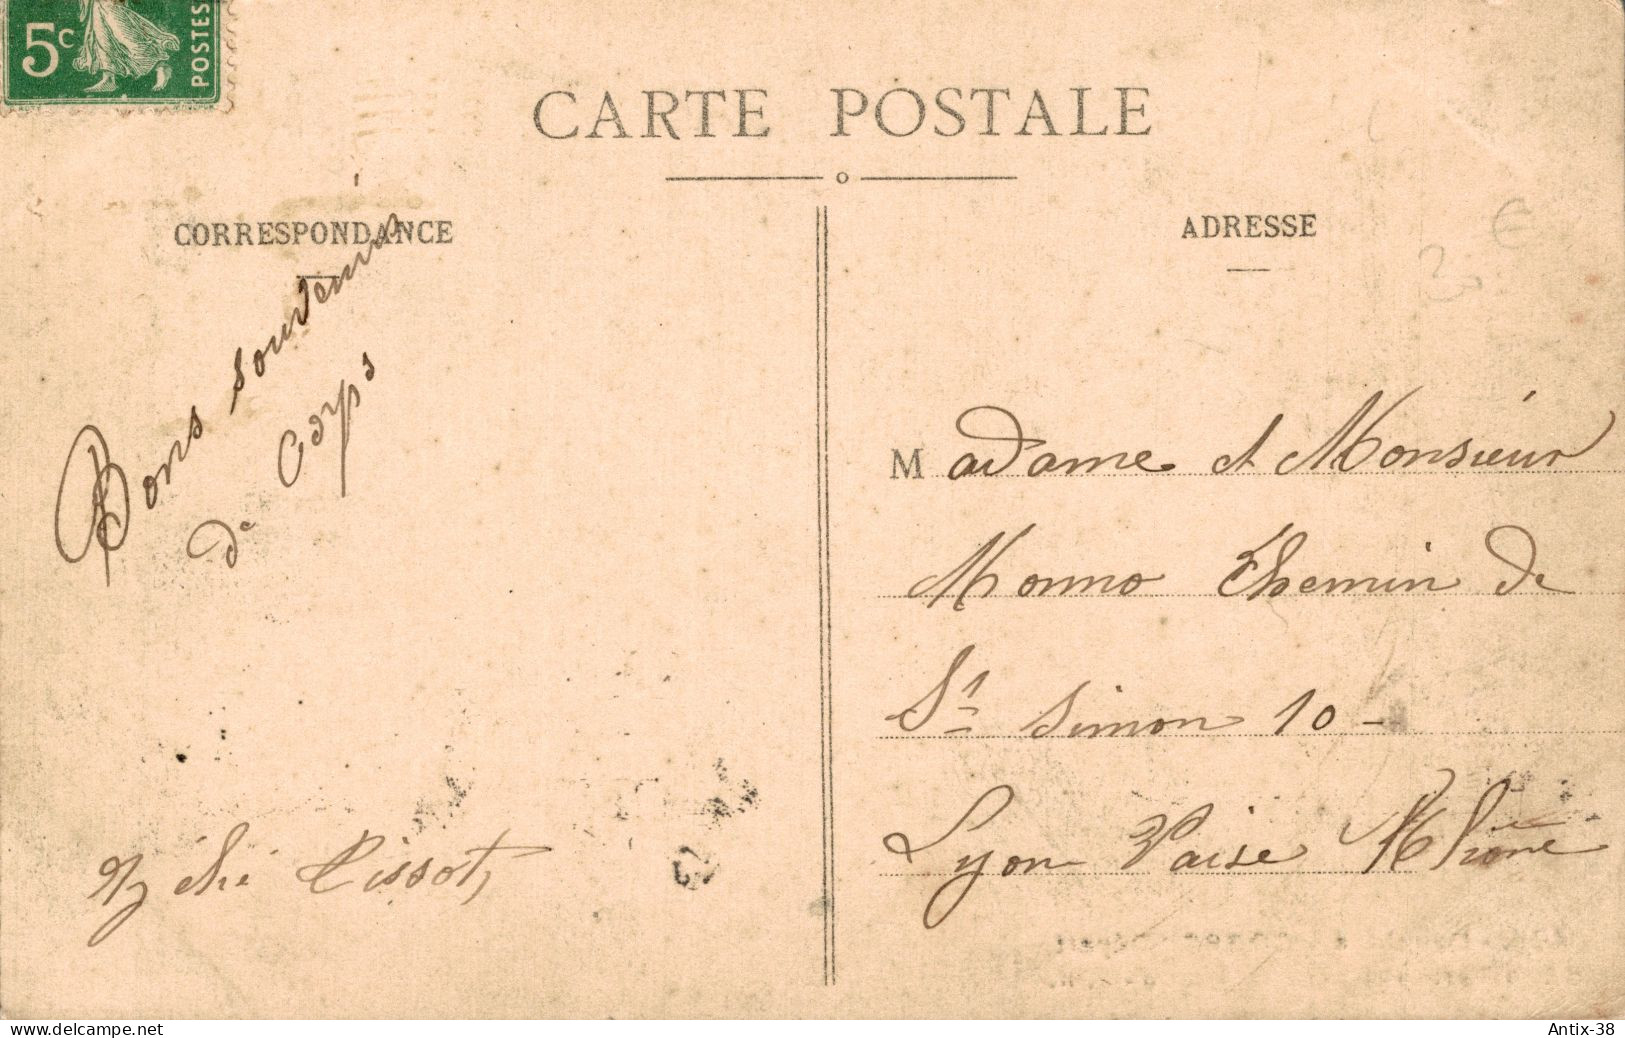 5c
POSTES
CARTE POSTALE
CORRESPONDANCE
ADRESSE
Bons souvenirs
de Corps
Tissot
Madame et Monsieur
Monno Chemin de
St Simon 10 -
Lyon Vaise Rhône
www.delcampe.net
Antix-38